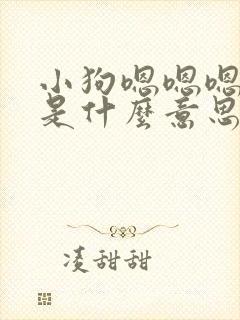 小狗嗯嗯嗯
是什麼意思
凌甜甜